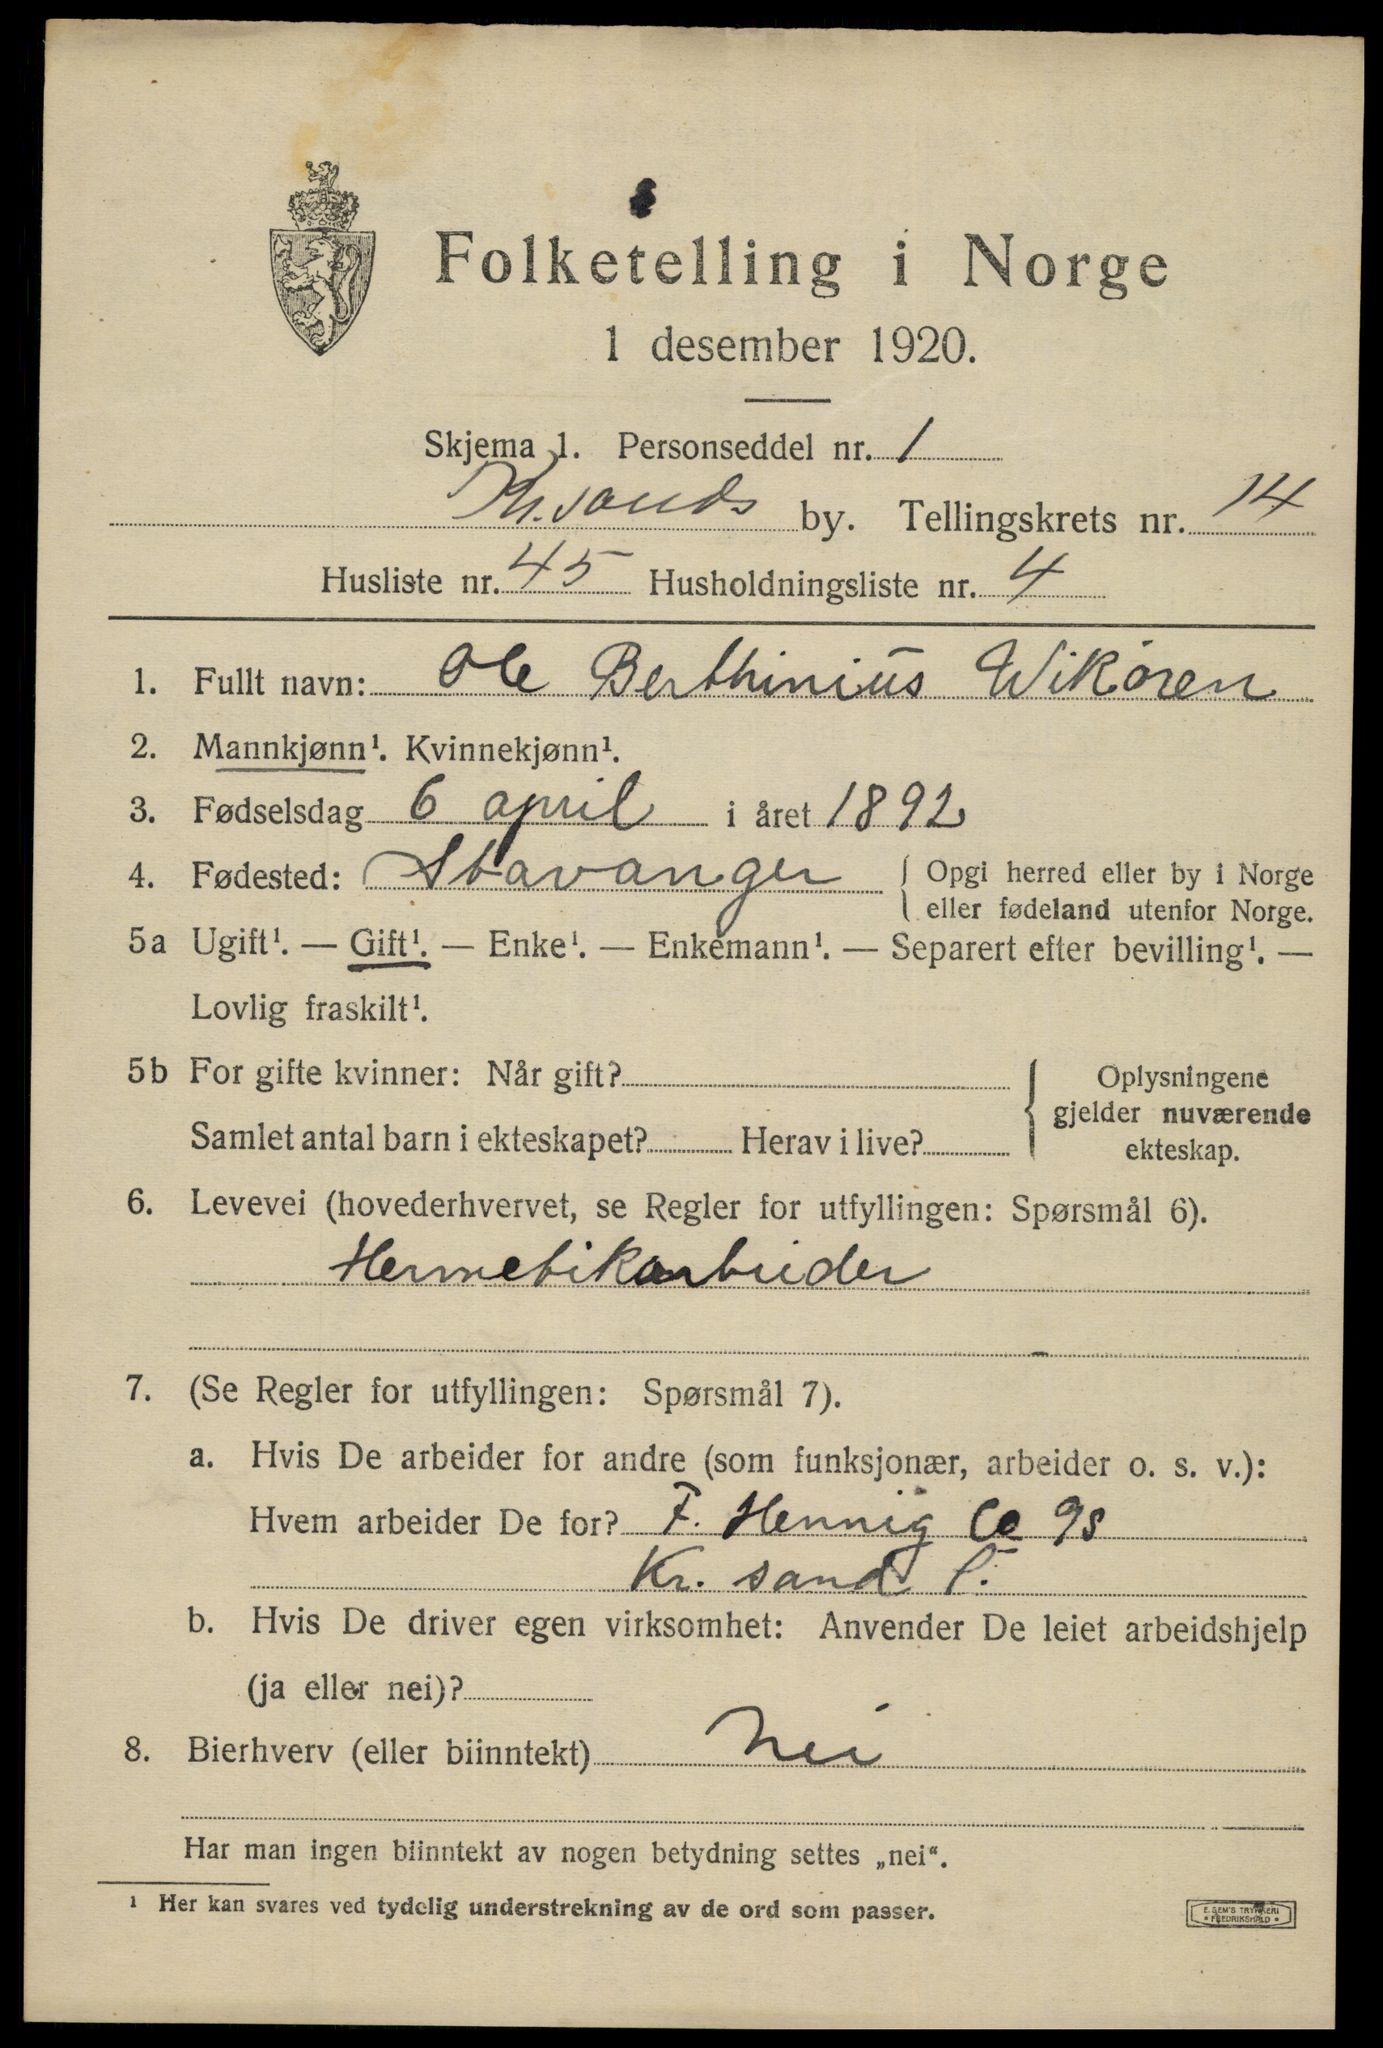 Folketelling i Norge
1 desember 1920.
Skjema 1. Personseddel nr. 1
Kr.sands by. Tellingskrets nr. 14
Husliste nr. 45 Husholdningsliste nr. 4
1. Fullt navn: Ole Berthinius Wikøren
2. Mannkjønn¹. Kvinnekjønn¹.
3. Fødselsdag 6 april i året 1892
4. Fødested: Stavanger { Opgi herred eller by i Norge
eller fødeland utenfor Norge.
5a Ugift¹. — Gift¹. — Enke¹. — Enkemann¹. — Separert efter bevilling¹. —
Lovlig fraskilt¹.
5b For gifte kvinner: Når gift?
Samlet antal barn i ekteskapet? Herav i live?
{ Oplysningene
gjelder nuværende
ekteskap.
6. Levevei (hovederhvervet, se Regler for utfyllingen: Spørsmål 6).
Hermetikarbeider
7. (Se Regler for utfyllingen: Spørsmål 7).
a. Hvis De arbeider for andre (som funksjonær, arbeider o. s. v.):
Hvem arbeider De for? F. Hennig Co
Kr. sand S.
b. Hvis De driver egen virksomhet: Anvender De leiet arbeidshjelp
(ja eller nei)?
8. Bierhverv (eller biinntekt) Nei
Har man ingen biinntekt av nogen betydning settes „nei“.
¹ Her kan svares ved tydelig understrekning av de ord som passer.
E. SEM'S TRYKKERI
* FREDRIKSHALD *